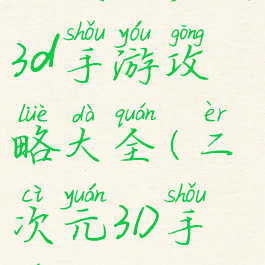 shǒu yóu gōng
3d手游攻
lüè dà quán èr
略大全(二
cì yuán shǒu
次元3D手